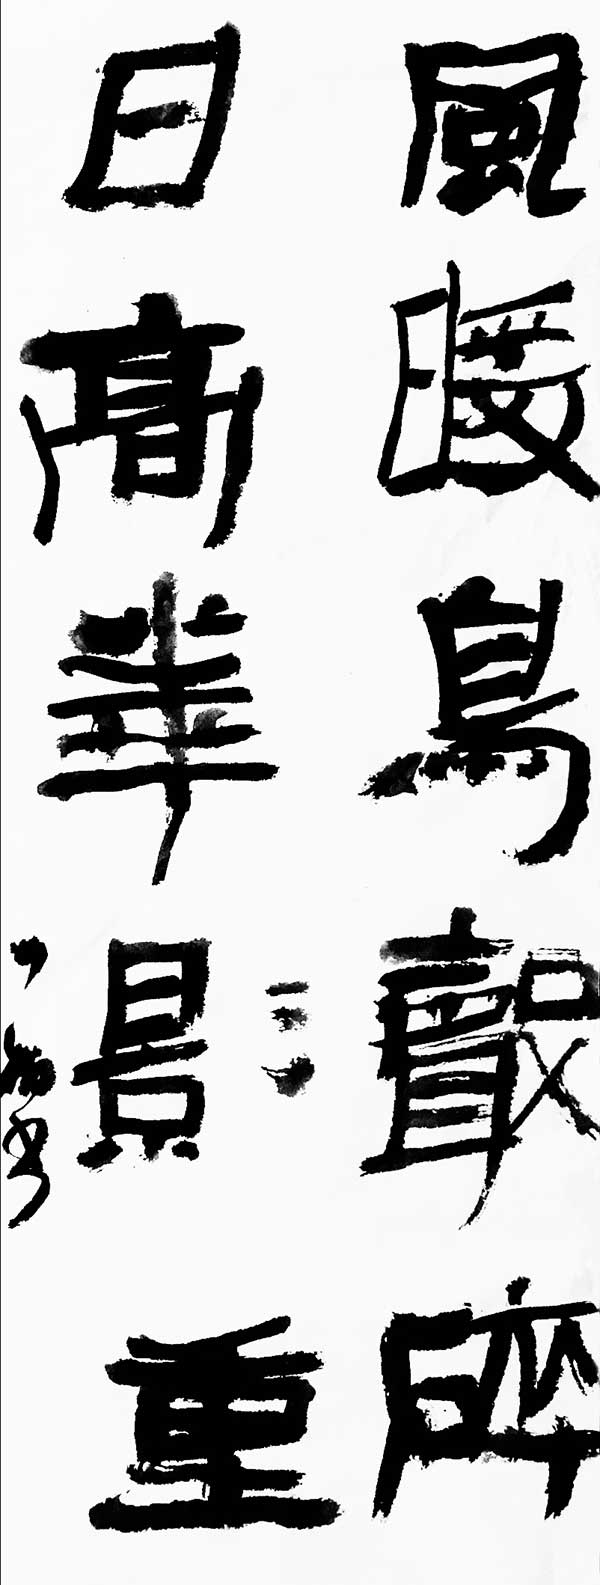 風暖鳥聲碎
日高華影重